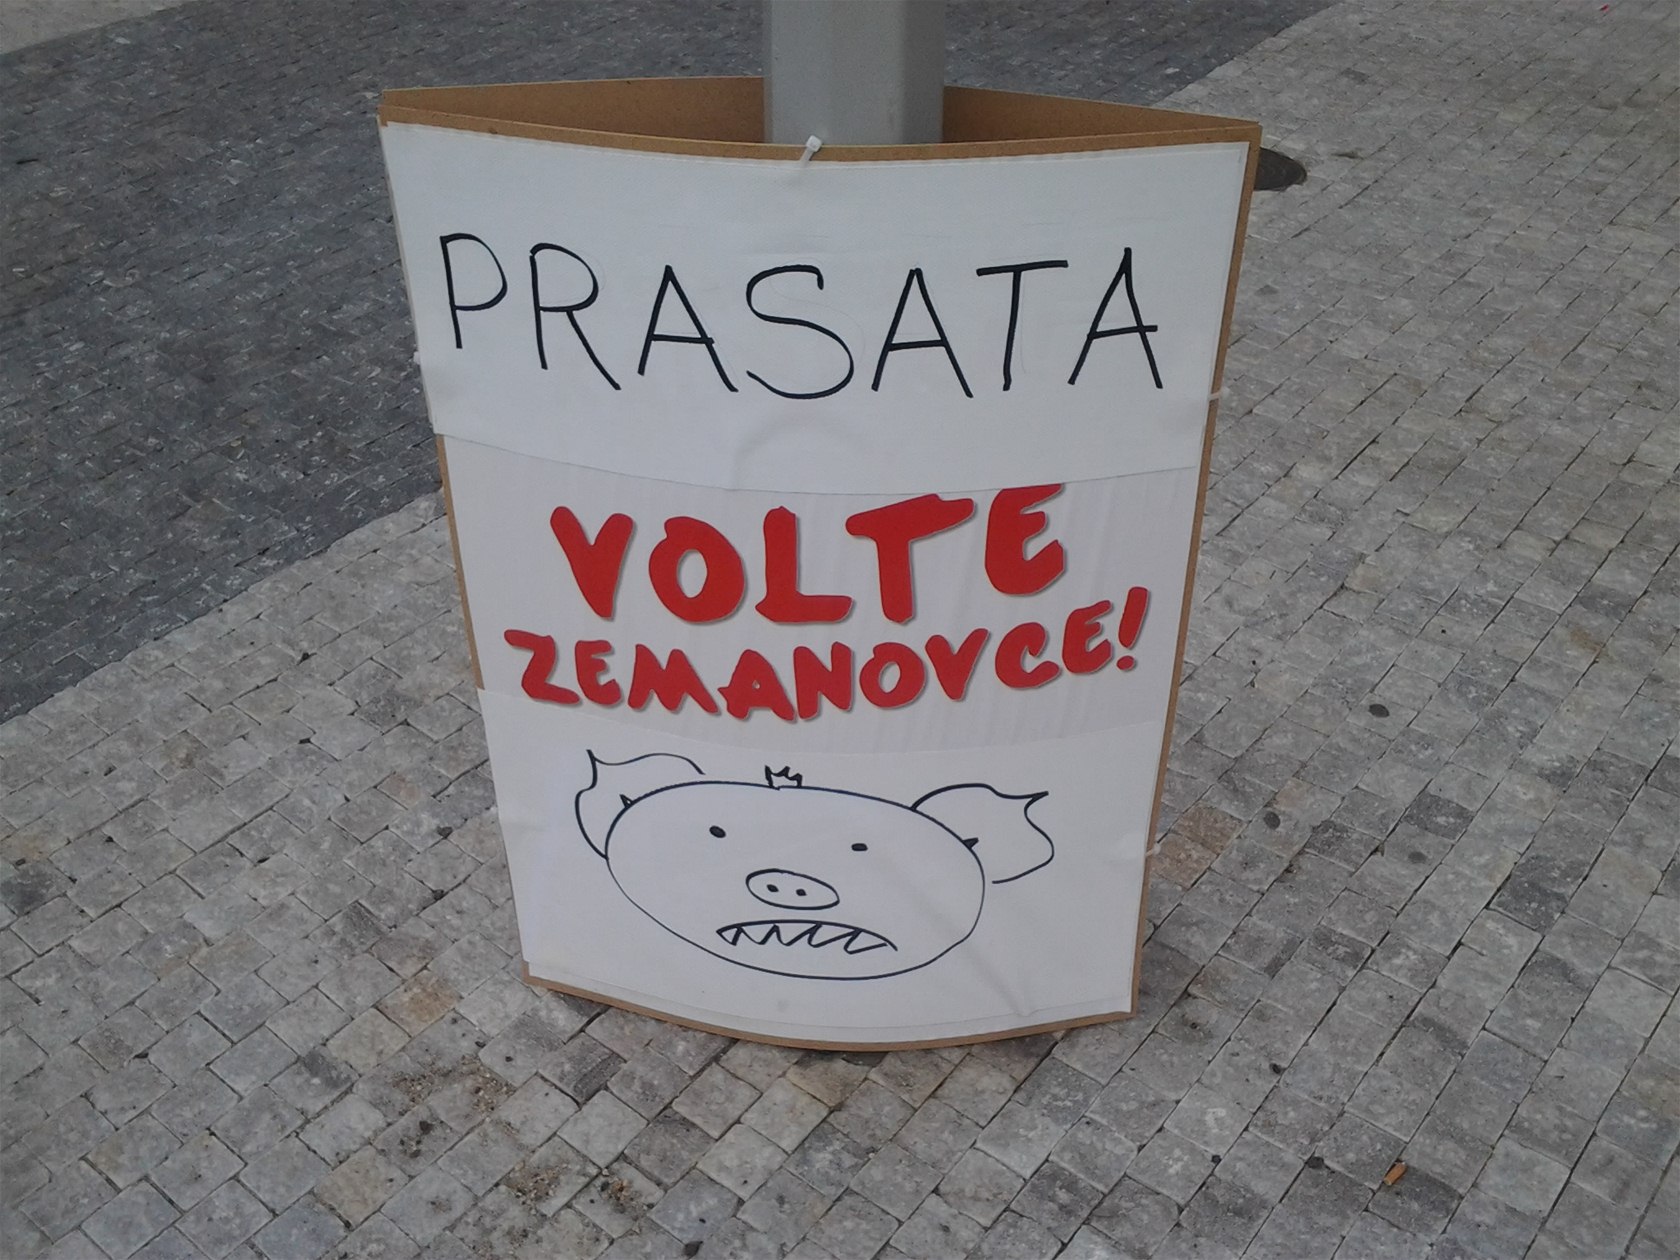 PRASATA
VOLTE
ZEMANOVCE!